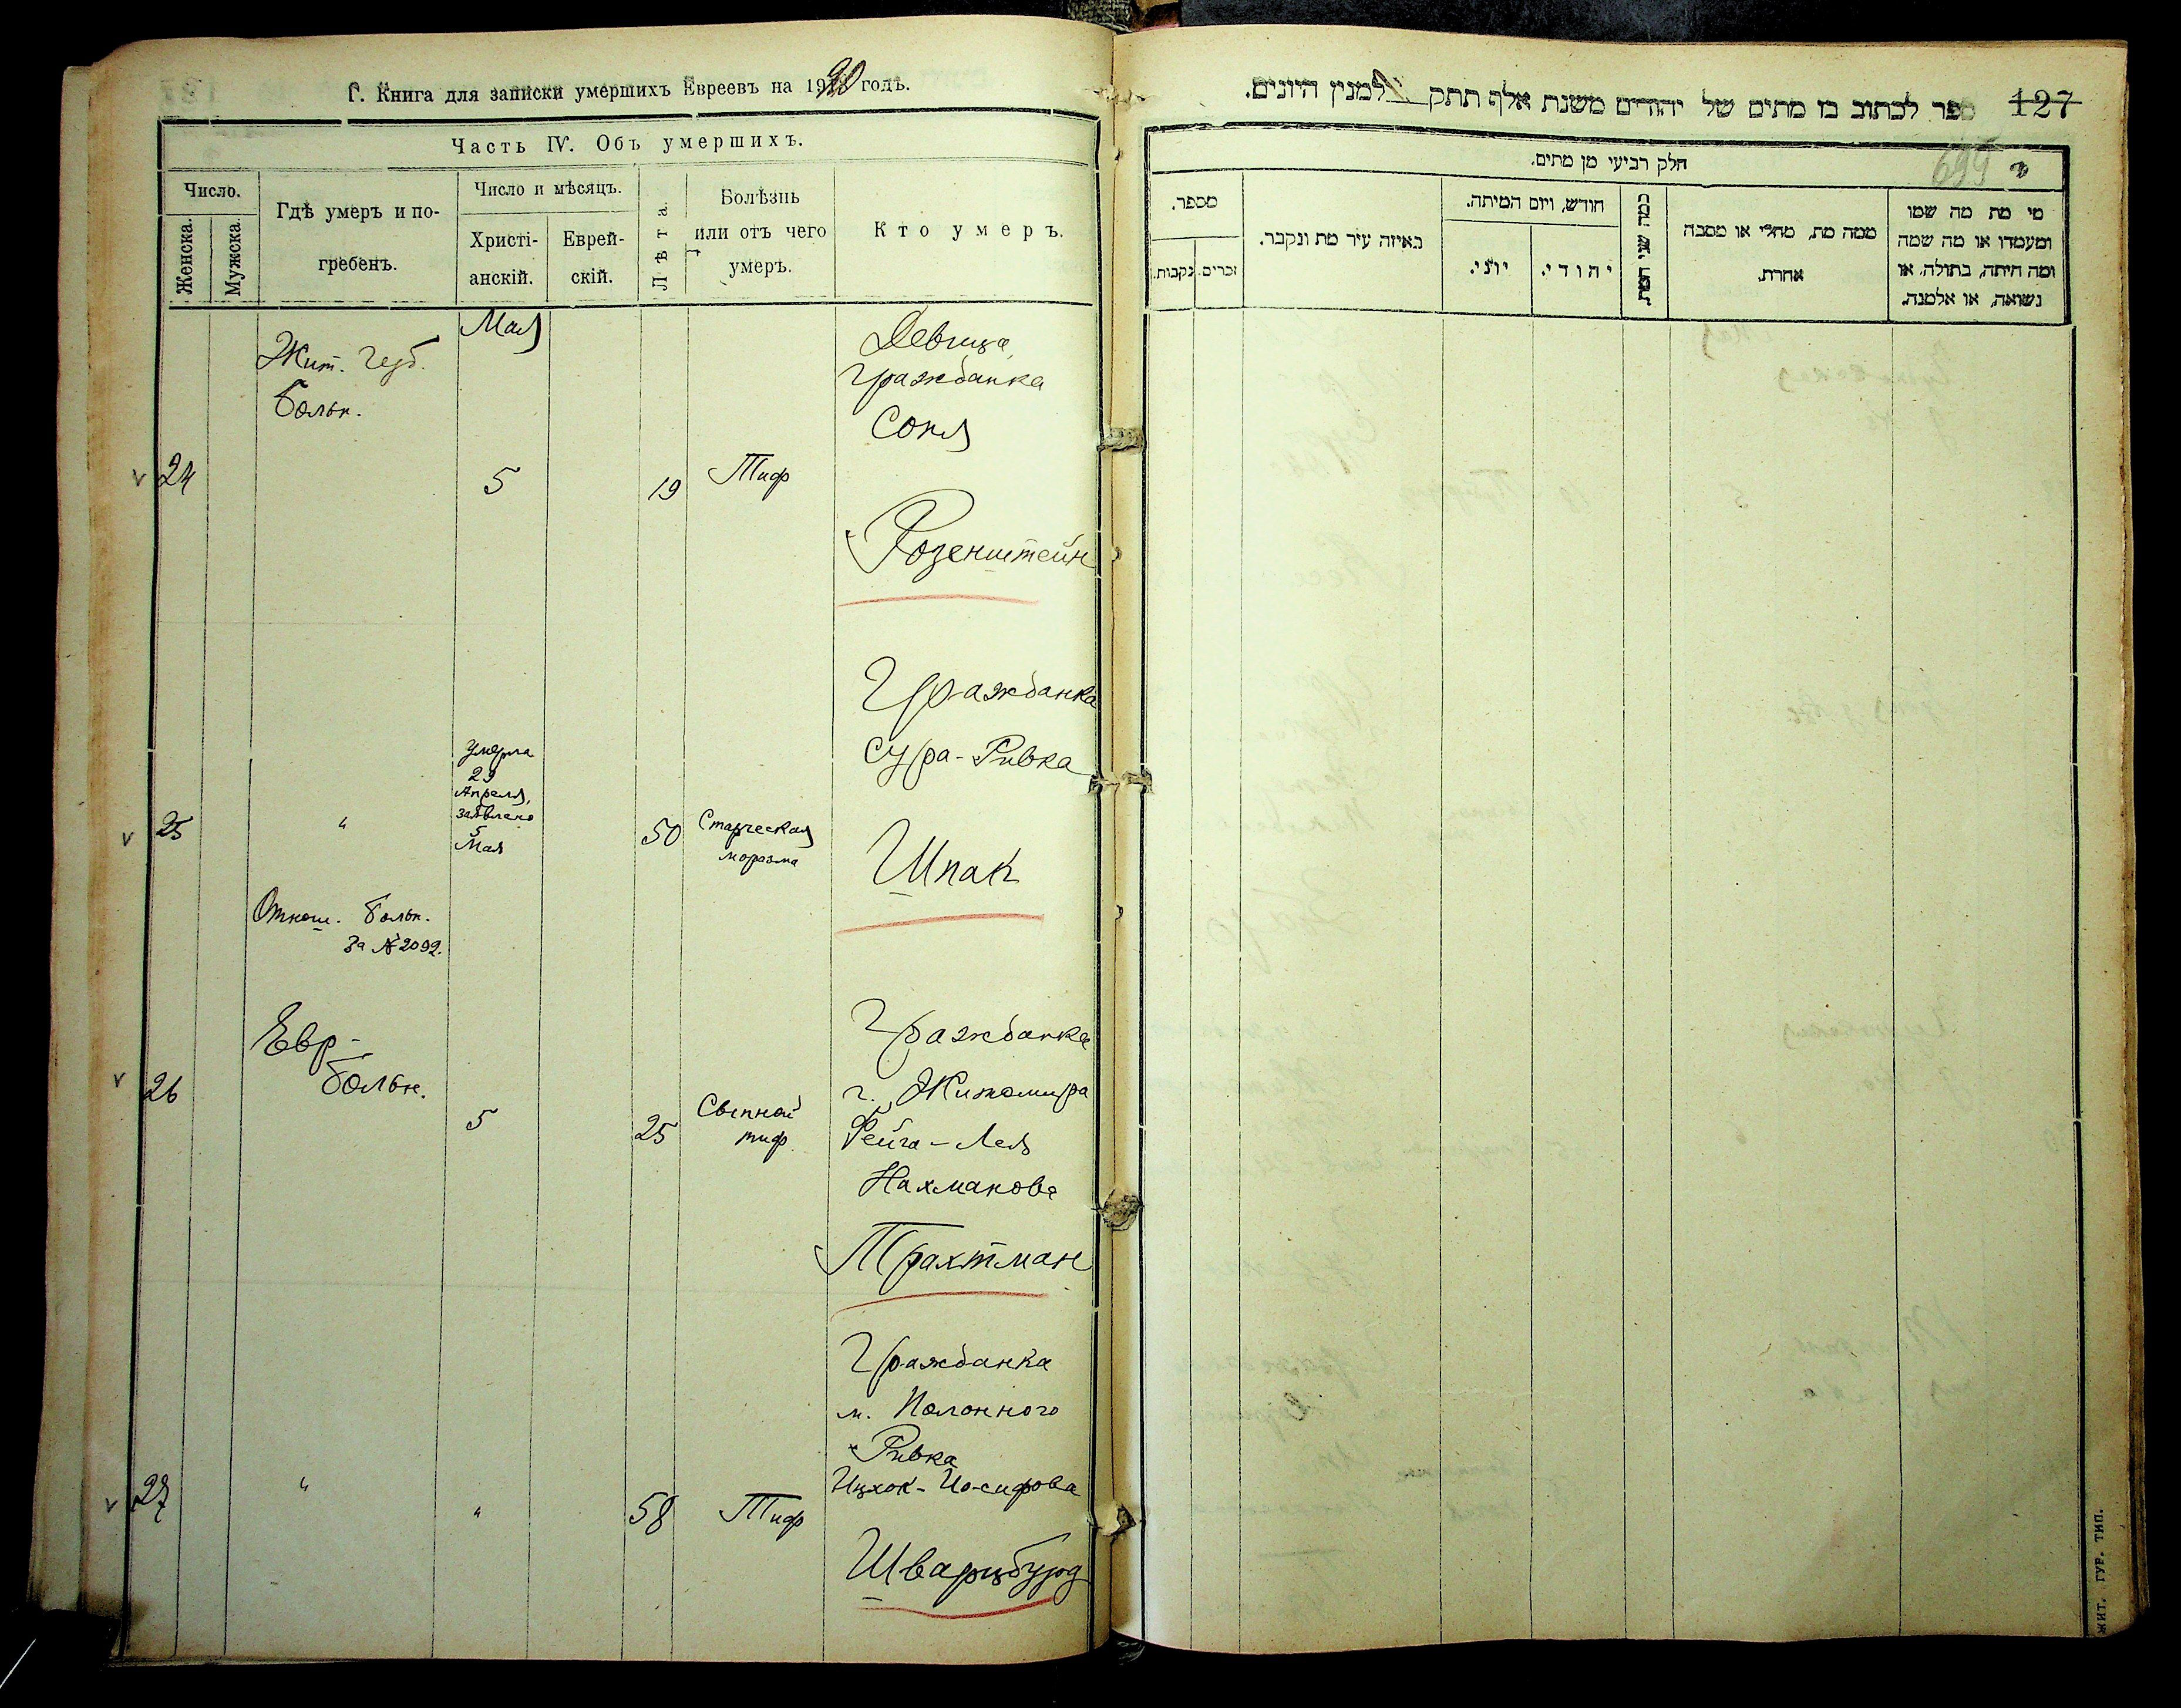 Г. Книга для записки умершихъ Евреевъ на 1920 годъ.
Часть IV. Объ умершихъ.
Число.
Женска.
Мужска.
Гдѣ умеръ и по-
гребенъ.
Число и мѣсяцъ.
Христі-
анскій.
Еврей-
скій.
Лѣта.
Болѣзнь
или отъ чего
умеръ.
Кто умеръ.
Мая
Жит. губ.
Больн.
24
5
19
Тиф
Девица
гражданка
Соня
Розенштейн
25
"
Умерла
29
Апреля,
заявлено
5
Мая
50
Старческая
моразма
Гражданка
Сура-Ривка
Шпак
Отнош. больн.
За № 2092.
26
Евр-
больн.
5
25
Сыпной
тиф
Гражданка
г. Житомира
Фейга-Лея
Нахманова
Трахтман
27
"
"
58
Тиф
Гражданка
м. Полонного
Ривка
Ицхок-Иосифова
Шварцбурд
ספר לכתוב בו מתים של יהודים משנת אלף תתק למנין היונים.
127
699
חלק רביעי מן מתים.
מספר.
זכרים.
נקבות.
באיזה עיר מת ונקבר.
חודש, ויום המיתה.
יוני.
יהודי.
כמה שני המת
ממה מת, מחלי או מסבה
אחרת.
מי מת מה שמו
ומעמדו או מה שמה
ומה היתה, בתולה, או
נשואה, או אלמנה.
ЖИТ. ГУР. ТИП.